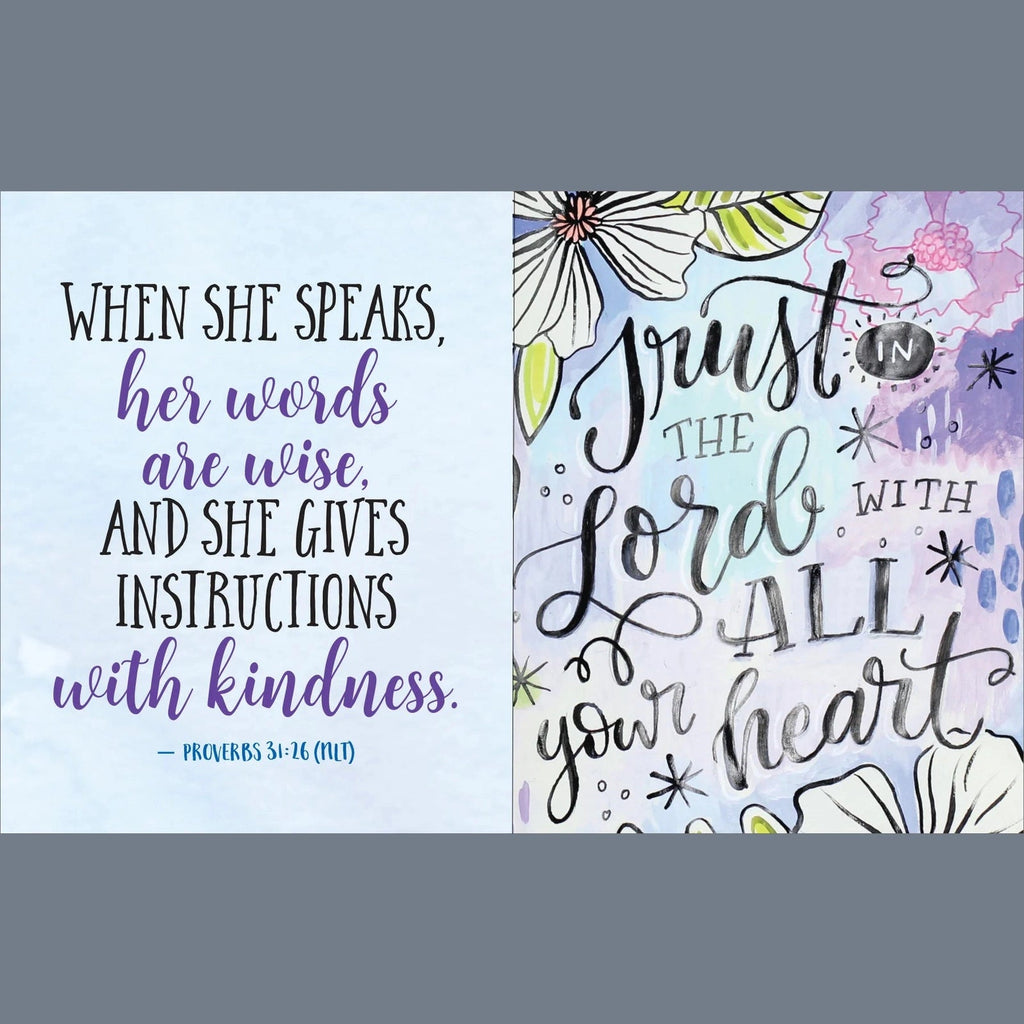 WHEN SHE SPEAKS,
her words
are wise,
AND SHE GIVES
INSTRUCTIONS
with kindness.
— PROVERBS 31:26 (NLT)
Trust IN
THE
Lord WITH
ALL
your heart